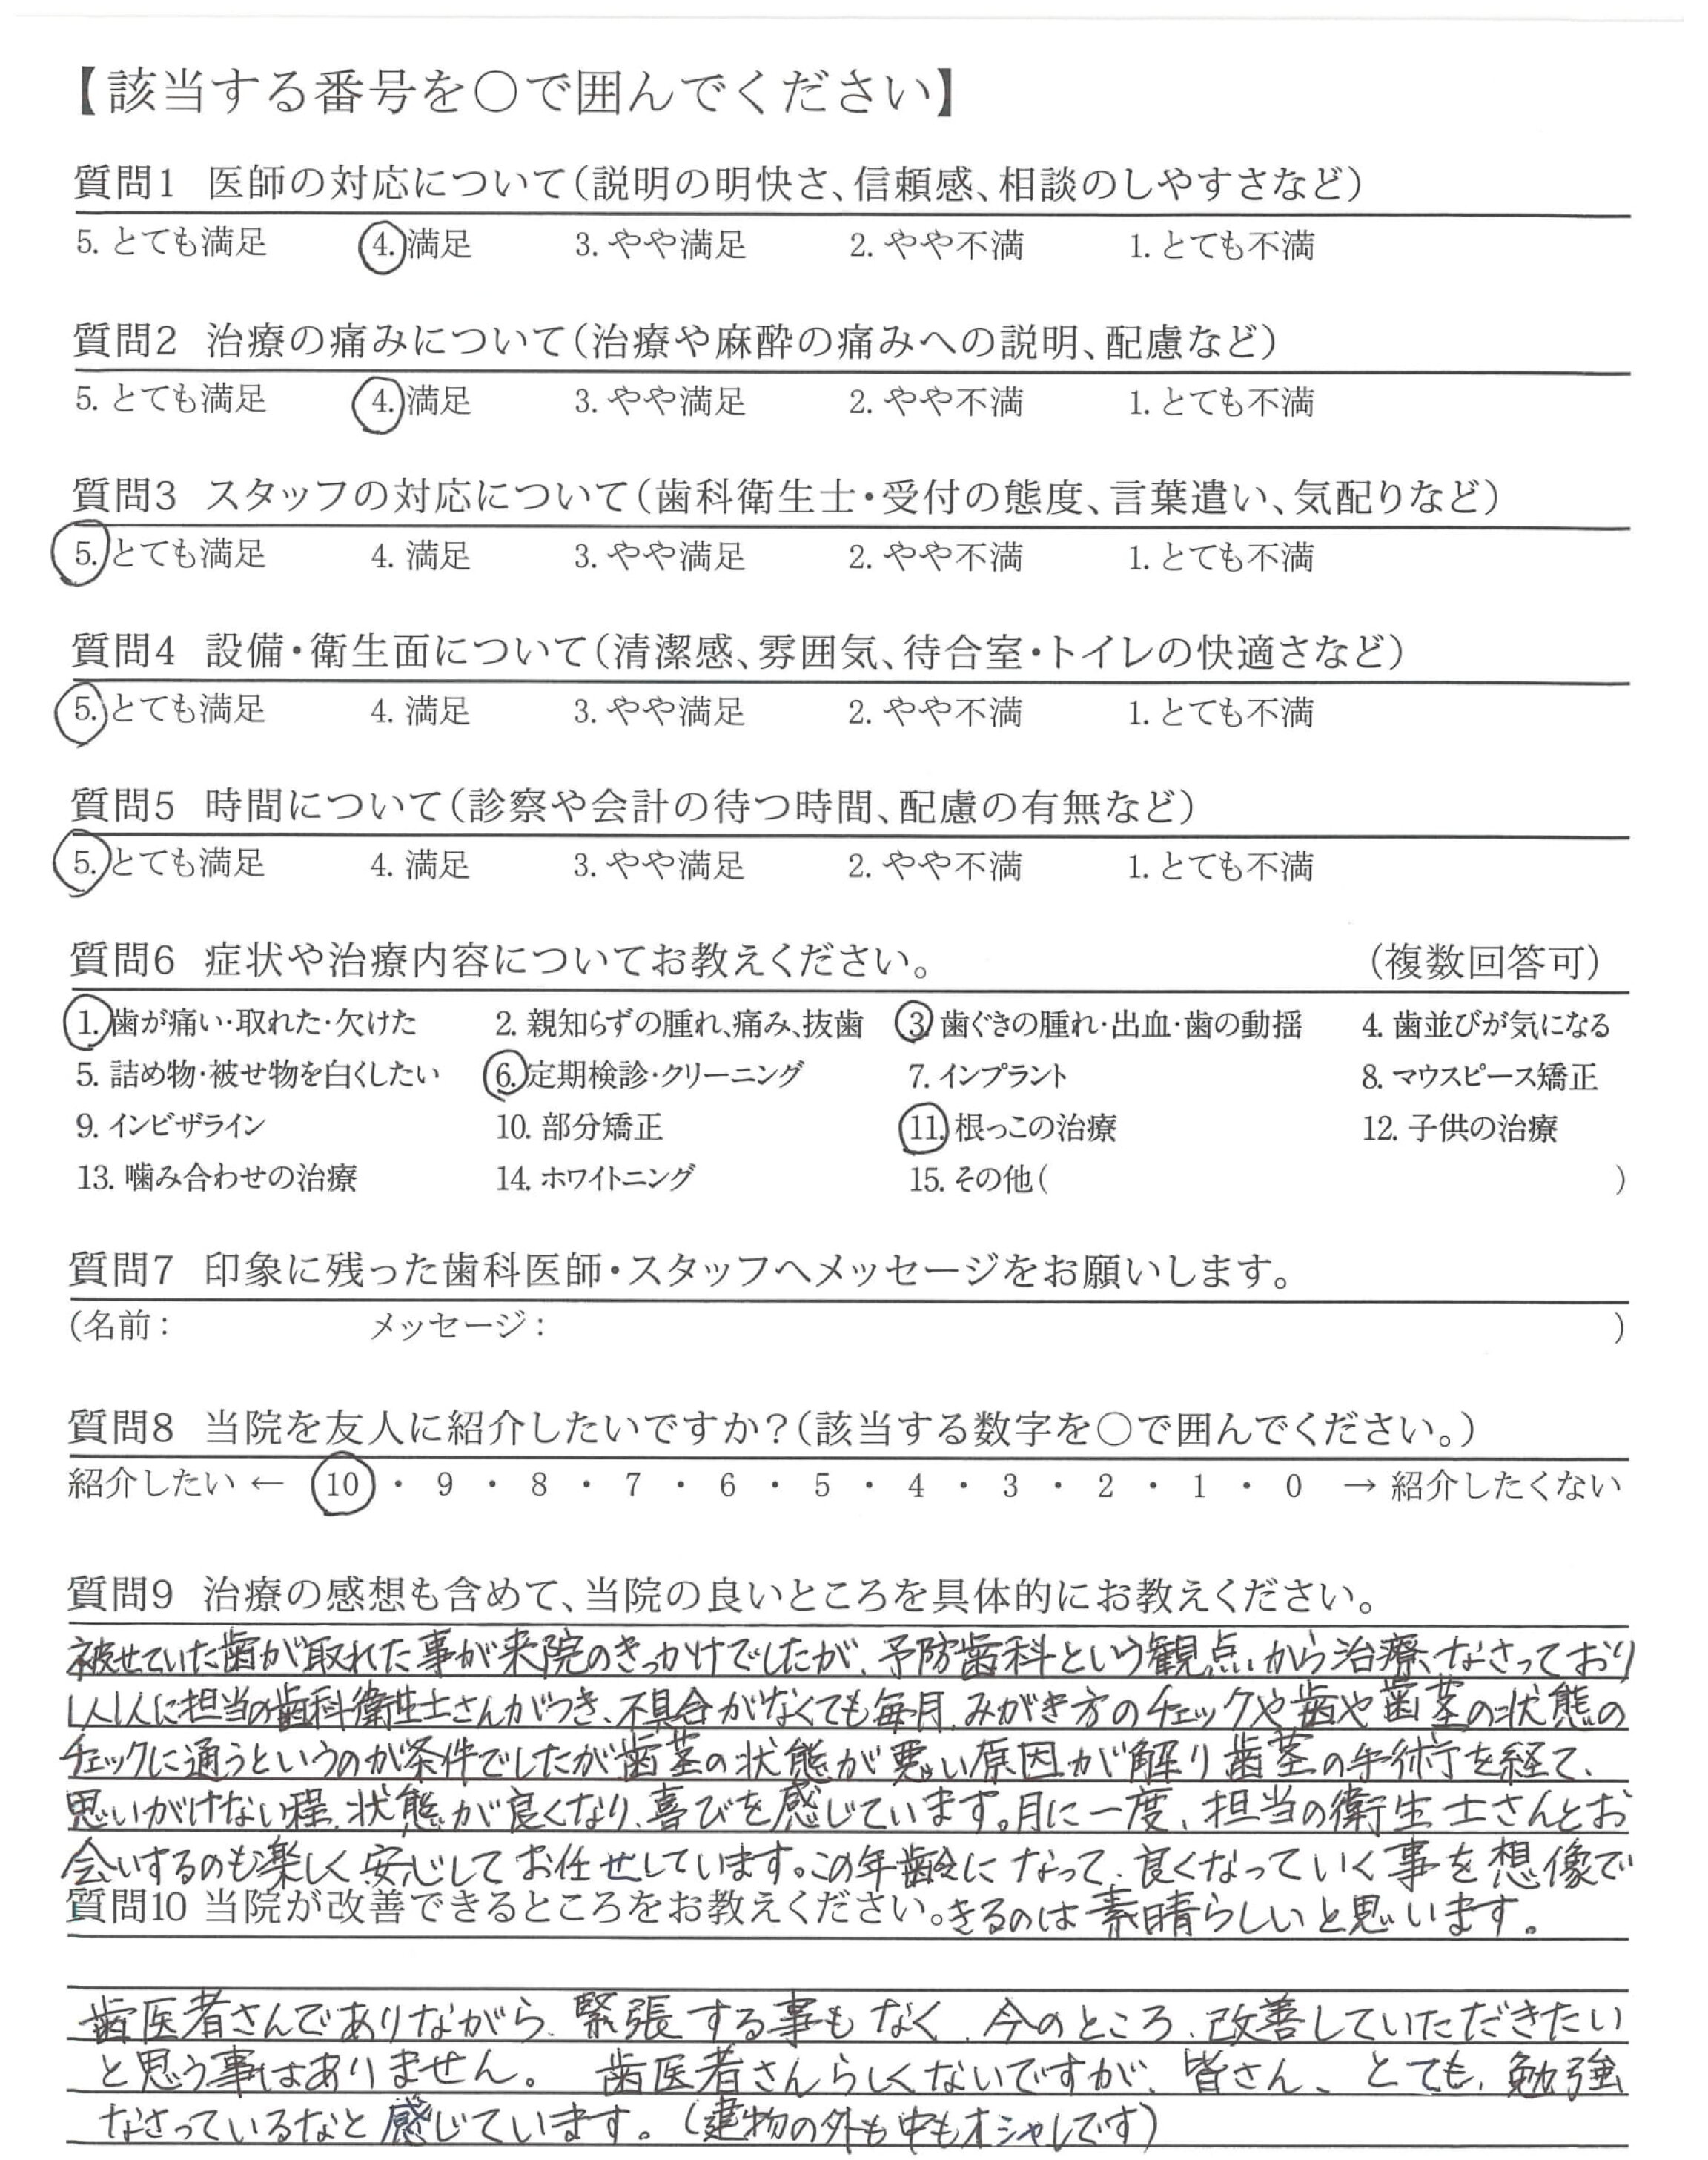 【該当する番号を○で囲んでください】
質問1 医師の対応について(説明の明快さ、信頼感、相談のしやすさなど)
5. とても満足 4. 満足 3. やや満足 2. やや不満 1. とても不満
質問2 治療の痛みについて(治療や麻酔の痛みへの説明、配慮など)
5. とても満足 4. 満足 3. やや満足 2. やや不満 1. とても不満
質問3 スタッフの対応について(歯科衛生士・受付の態度、言葉遣い、気配りなど)
5. とても満足 4. 満足 3. やや満足 2. やや不満 1. とても不満
質問4 設備・衛生面について(清潔感、雰囲気、待合室・トイレの快適さなど)
5. とても満足 4. 満足 3. やや満足 2. やや不満 1. とても不満
質問5 時間について(診察や会計の待つ時間、配慮の有無など)
5. とても満足 4. 満足 3. やや満足 2. やや不満 1. とても不満
質問6 症状や治療内容についてお教えください。 (複数回答可)
1. 歯が痛い・取れた・欠けた 2. 親知らずの腫れ、痛み、抜歯 3. 歯ぐきの腫れ・出血・歯の動揺 4. 歯並びが気になる
5. 詰め物・被せ物を白くしたい 6. 定期検診・クリーニング 7. インプラント 8. マウスピース矯正
9. インビザライン 10. 部分矯正 11. 根っこの治療 12. 子供の治療
13. 噛み合わせの治療 14. ホワイトニング 15. その他( )
質問7 印象に残った歯科医師・スタッフへメッセージをお願いします。
(名前: メッセージ: )
質問8 当院を友人に紹介したいですか?(該当する数字を○で囲んでください。)
紹介したい ← 10 ・ 9 ・ 8 ・ 7 ・ 6 ・ 5 ・ 4 ・ 3 ・ 2 ・ 1 ・ 0 → 紹介したくない
質問9 治療の感想も含めて、当院の良いところを具体的にお教えください。
被せていた歯が取れた事が来院のきっかけでしたが、予防歯科という観点から治療なさっており
1人1人に担当の歯科衛生士さんがつき、不具合がなくても毎月、みがき方のチェックや歯や歯茎の状態の
チェックに通うというのが条件でしたが歯茎の状態が悪い原因が解り歯茎の手術を経て、
思いがけない程、状態が良くなり、喜びを感じています。月に一度、担当の衛生士さんとお
会いするのも楽しく安心してお任せしています。この年齢になって、良くなっていく事を想像で
質問10 当院が改善できるところをお教えください。きるのは素晴らしいと思います。
歯医者さんでありながら、緊張する事もなく、今のところ、改善していただきたい
と思う事はありません。 歯医者さんらしくないですが、皆さん、とても、勉強
なさっているなと感じています。(建物の外も中もオシャレです)